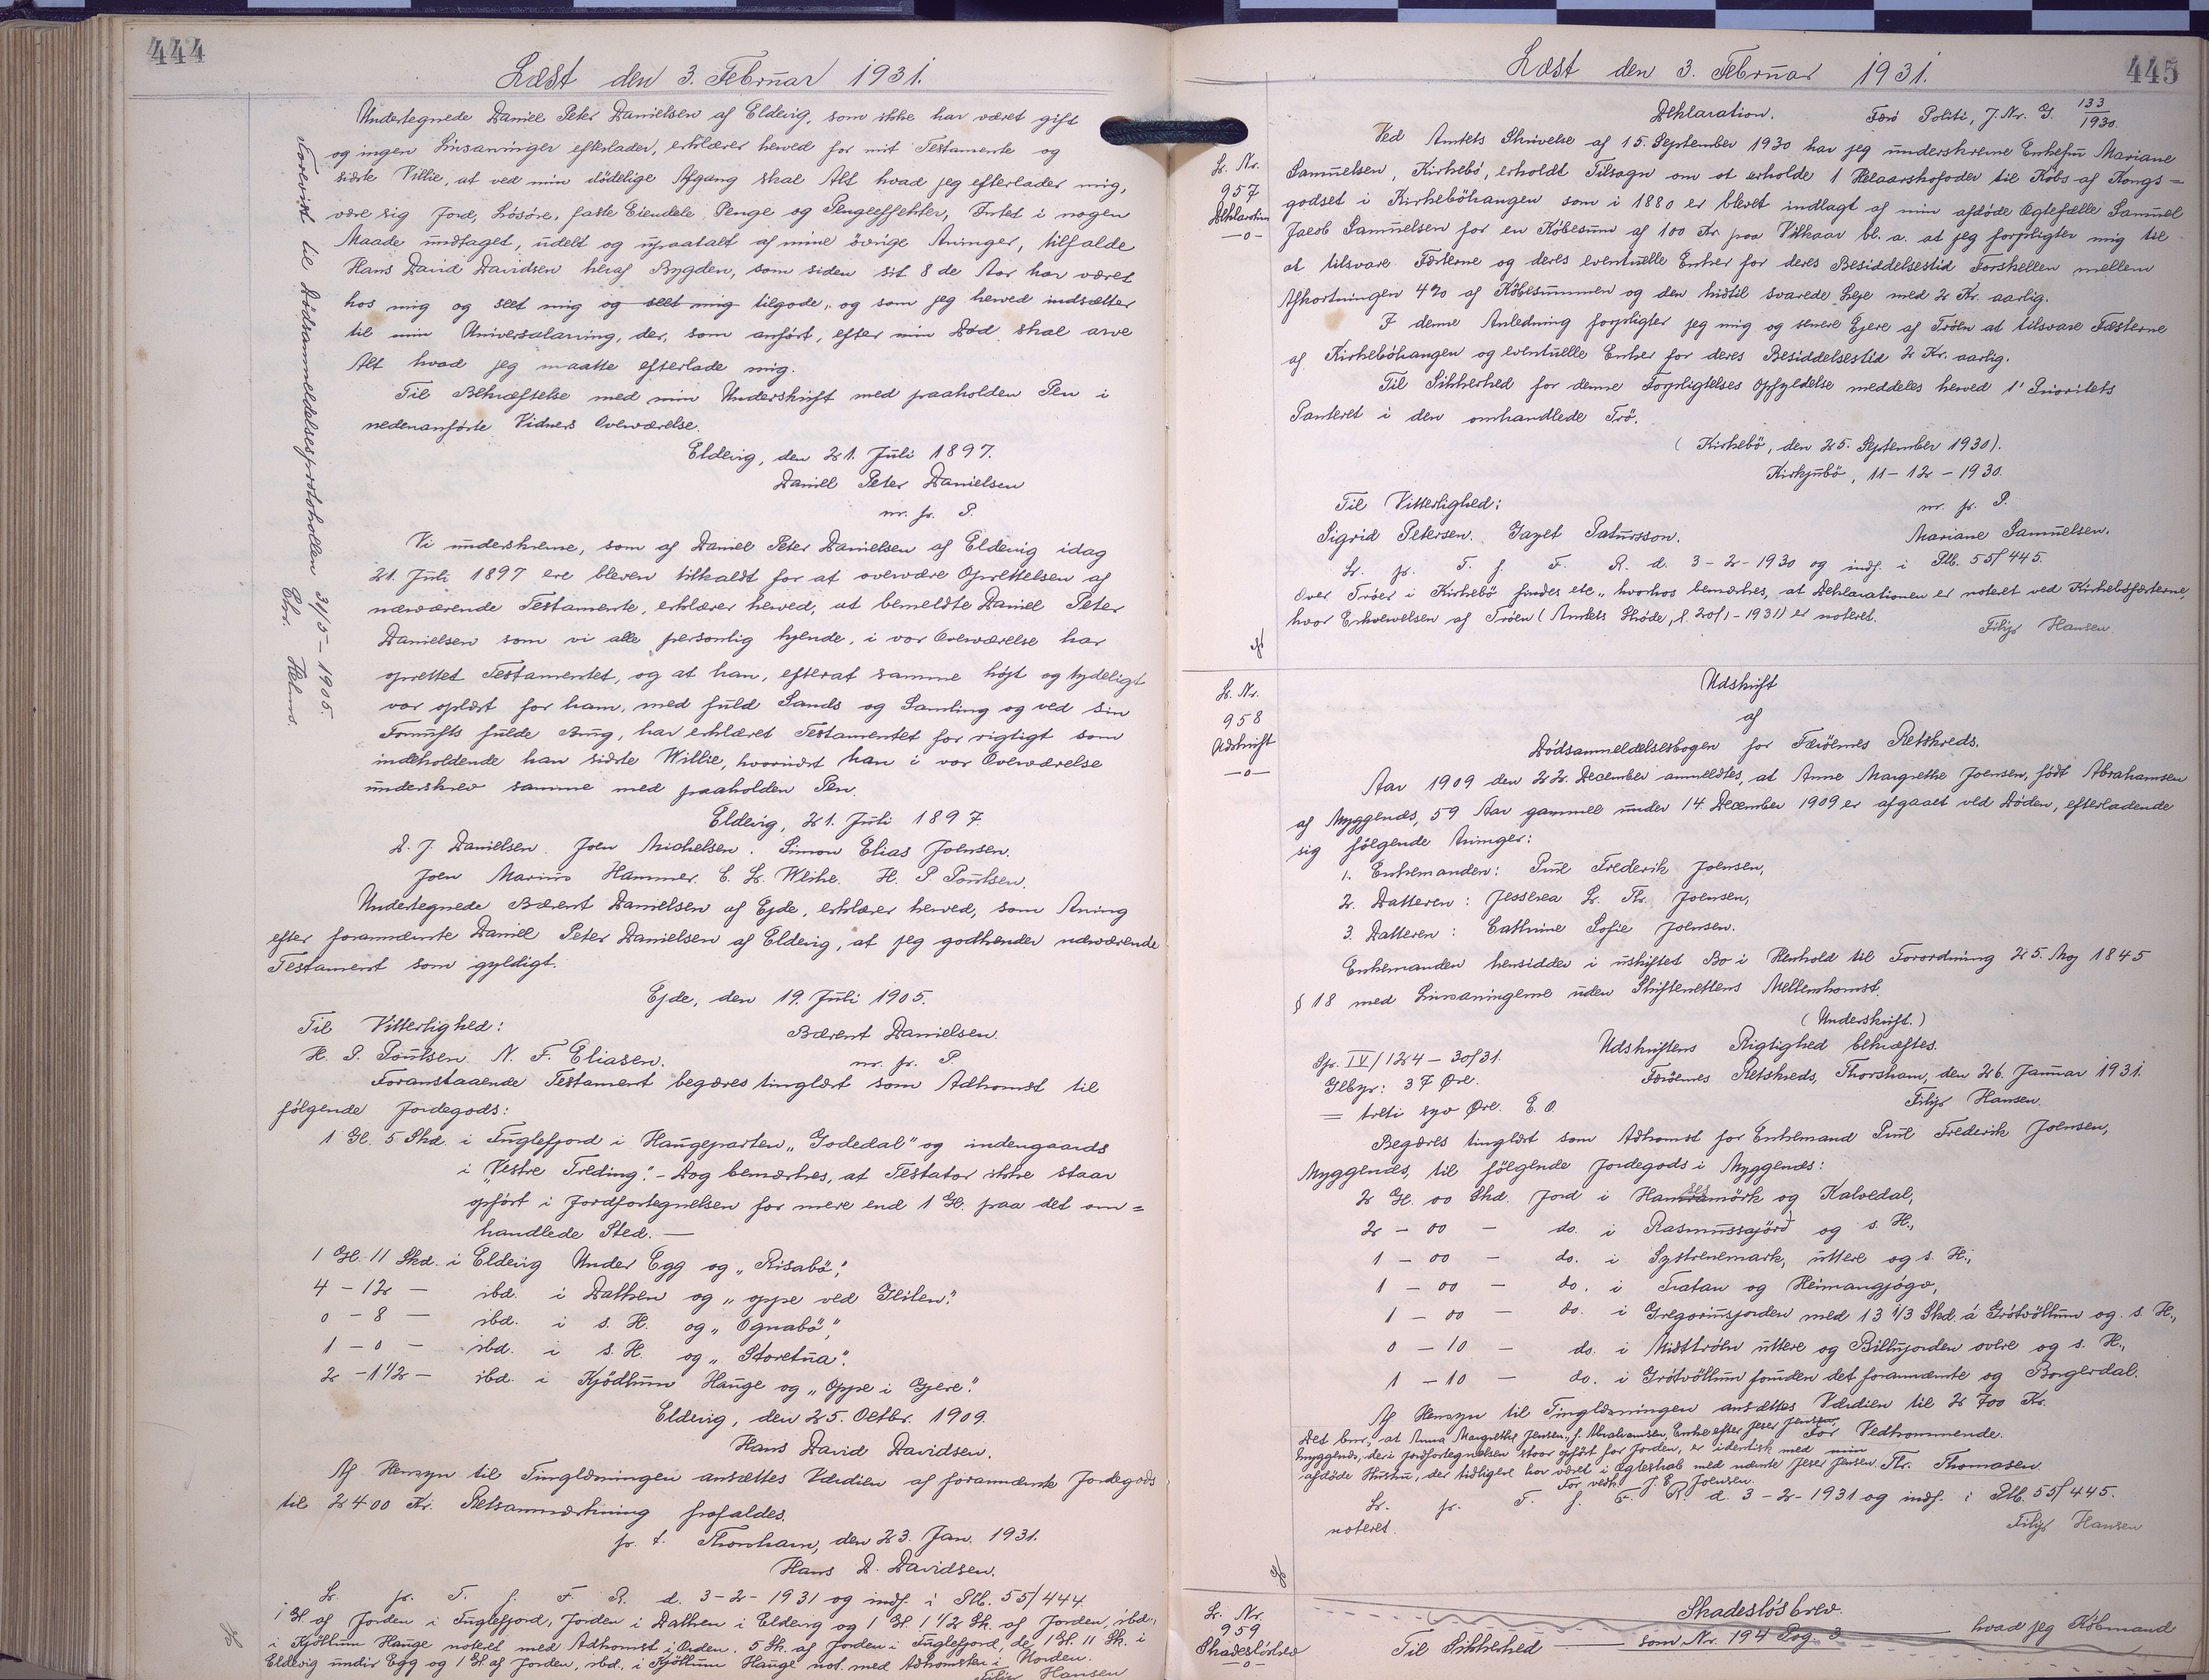 444
Læst den 3. Februar 1931.
Undertegnede Daniel Peter Danielsen af Eldevig, som ikke har været gift
og ingen Livsarvinger efterlader, erklærer herved for mit Testamente og
sidste Villie, at ved min dödelige Afgang skal Alt hvad jeg efterlader mig,
være sig Jord, Lösöre, faste Eiendele, Penge og Pengeeffekter, Intet i nogen
Maade undtaget, udelt og upaatalt af mine övrige Arvinger, tilfalde
Hans David Davidsen heraf Bygden, som siden sit 8 de Aar har været
hos mig og seet mig og seet mig tilgode, og som jeg herved indsætter
til min Universalarving, der, som anfört, efter min Död skal arve
Alt hvad jeg maatte efterlade mig.
Til Bekræftelse med min Underskrift med paaholden Pen i
nedenanförte Vidners Overværelse.
Eldevig, den 21. Juli 1897.
Daniel Peter Danielsen
m. p. P.
Vi underskrevne, som af Daniel Peter Danielsen af Eldevig idag
21. Juli 1897 ere bleven tilkaldt for at overvære Oprettelsen af
nærværende Testamente, erklærer herved, at bemeldte Daniel Peter
Danielsen som vi alle personlig kjende, i vor Overværelse har
oprettet Testamentet, og at han, efterat samme höjt og tydeligt
var oplæst for ham, med fuld Sands og Samling og ved sin
Fornufts fulde Brug, har erklæret Testamentet for rigtigt som
indeholdende han sidste Willie, hvornæst han i vor Overværelse
underskrev samme med paaholden Pen.
Eldevig, 21. Juli 1897.
D. J. Danielsen. Joen Michelsen. Simon Elias Joensen.
Joen Marius Hammer. C. L. Weihe. H. P. Poulsen.
Undertegnede Bærent Danielsen af Ejde, erklærer herved, som Arving
efter forannævnte Daniel Peter Danielsen af Eldevig, at jeg godkender nærværende
Testament som gyldigt.
Ejde, den 19. Juli 1905.
Til Vitterlighed: Bærent Danielsen.
H. P. Poulsen. N. F. Eliasen. m. p. P.
Foranstaaende Testament begæres tinglæst som Adkomst til
fölgende Jordegods:
1 Gl. 5 Skd. i Fuglefjord i Haugeparten „Godedal" og indengaards
i „Vestre Treding". - Dog bemærkes, at Testator ikke staar
opfört i Jordfortegnelsen for mere end 1 Gl. paa det om=
handlede Sted. —
1 Gl. 11 Skd. i Eldevig Under Egg og „Risabö",
4 - 12 - ibd. i Dalken og „oppe ved Gleilen".
0 - 8 - ibd. i s. H. og „Ognabö",
1 - 0 - ibd. i s. H. og „Storetua".
2 - 1 1/2 - ibd. i Kjödlum Hauge og „Oppe i Gjere".
Eldevig, den 25. Octbr. 1909.
Hans David Davidsen.
Af Hensyn til Tinglæsningen ansættes Værdien af forannævnte Jordegods
til 2400 Kr. Retsanmærkning frafaldes.
p. t. Thorshavn, den 23. Jan. 1931.
Hans D. Davidsen.
L. p. T. f. F. R. d. 3-2-1931 og indf. i Ptb. 55/444.
1 Gl. af Jorden i Fuglefjord, Jorden i Dalken i Eldevig og 1 Gl. 1 1/2 Sk. af Jorden, ibd.,
i Kjöllum Hauge noteret med Adkomst i Orden. 5 Sk. af Jorden i Fuglefjord, de 1 Gl. 11 Sk. i
Eldevig undir Egg og 1 Gl. af Jorden, ibd., i Kjöllum Hauge not. med Adkomsten i Uorden.
Filip Hansen
Forevist til Dödsanmeldelsesprotokollen 31/5 - 1905.
445
Læst den 3. Februar 1931.
Deklaration. Færö Politi, J. Nr. G. 133/1930.
L. Nr.
957
Deklaration
—o—
Ved Amtets Skrivelse af 15. September 1930 har jeg underskrevne Enkefru Mariane
Samuelsen, Kirkebö, erholdt Tilsagn om at erholde 1 Helaarskofoder til Köbs af Kongs=
godset i Kirkeböhaugen som i 1880 er blevet indlagt af min afdöde Ægtefælle Samuel
Jacob Samuelsen for en Köbesum af 100 Kr. paa Vilkaar bl. a. at jeg forpligter mig til
at tilsvare Fæsterne og deres eventuelle Enker for deres Besiddelsestid Forskellen mellem
Afkortningen 4% af Köbesummen og den hidtil svarede Leje med 2 Kr. aarlig.
I denne Anledning forpligter jeg mig og senere Ejere af Tröen at tilsvare Fæsterne
af Kirkeböhaugen og eventuelle Enker for deres Besiddelsestid 2 Kr. aarlig.
Til Sikkerhed for denne Forpligtelses Opfyldelse meddeles herved 1' Prioritets
Panteret i den omhandlede Trö.
(Kirkebö, den 25. September 1930).
Kirkjubö, 11-12-1930.
Til Vitterlighed: m. p. P.
Sigrid Petersen. Gazet Patursson. Mariane Samuelsen.
L. p. T. f. F. R. d. 3-2-1930 og indf. i Ptb. 55/445.
Over Tröer i Kirkebö findes etc., hvorhos bemærkes, at Deklarationen er noteret ved Kirkeböfæsterne,
hvor Erhvervelsen af Tröen (Amtets Sköde, l. 20/1-1931) er noteret.
Filip Hansen.
L. Nr.
958
Udskrift
—o—
Udskrift
af
Dödsanmeldelsesbogen for Færöernes Retskreds.
Aar 1909 den 22. December anmeldtes, at Anne Margrethe Joensen, födt Abrahamsen
af Myggenæs, 59 Aar gammel under 14. December 1909 er afgaaet ved Döden, efterladende
sig fölgende Arvinger:
1. Enkemanden: Poul Frederik Joensen,
2. Datteren: Jesserea L. Kr. Joensen,
3. Datteren: Cathrine Sofie Joensen.
Enkemanden hensidder i uskiftet Bo i Henhold til Forordning 25. Maj 1845
§ 18 med Livsarvingerne uden Skifterettens Mellemkomst.
(Underskrift.)
Sp. IV/124 - 30/31. Udskriftens Rigtighed bekræftes.
Glbyr: 37 Øre. Færöernes Retskreds, Thorshavn, den 26. Januar 1931.
= treti syv Øre. E. O. Filip Hansen.
Begæres tinglæst som Adkomst for Enkemand Poul Frederik Joensen,
Myggenæs, til fölgende Jordegods i Myggenæs:
2 Gl. 00 Skd. Jord i og Kalvedal,
2 - 00 - do. i Rasmussajörd og s. H.,
1 - 00 - do. i Systrenemark, uttere og s. H.,
1 - 00 - do. i Tratan og Heimangjógv,
1 - 00 - do. i Gregoriusjorden med 13 1/3 Skd. á Grótvöllum og s. H.,
0 - 10 - do. i Midttröen uttere og Billujorden overe og s. H.,
1 - 10 - do. i Grótvöllum foruden det forannævnte og Borgerdal.
Af Hensyn til Tinglæsningen ansættes Værdien til 2700 Kr.
Det bem., at Anna Margrethe Jensen, f. Abrahamsen, Enke efter Jeser Jensen, For Vedkommende.
Myggenæs, der i Jordfortegnelsen staar opfört for Jorden, er identisk med min
afdöde Hustru, der tidligere har været i Ægteskab med nævnte Jeser Jensen. Th. Thomasen.
For vedk. J. E. Joensen.
L. p. T. f. F. R. d. 3-2-1931 og indf. i Ptb. 55/445.
noteret. Filip Hansen
L. Nr.
959
Skadeslösbrev
—o—
Skadeslösbrev.
Til Sikkerhed — som Nr. 194 Pag. 3 — hvad jeg Köbmand